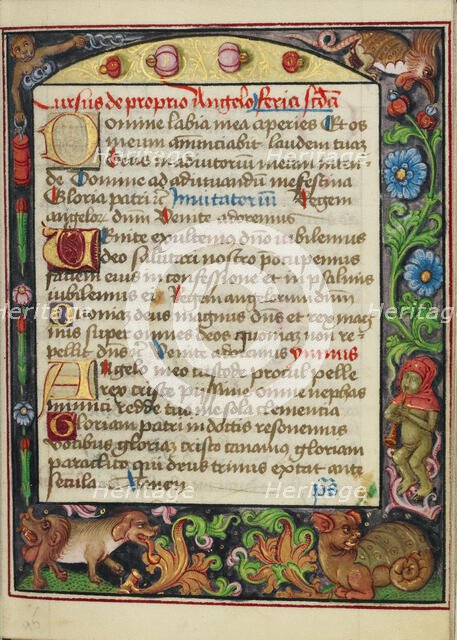 Cursus de proprio Angelo feria scda
Domine labia mea aperies Et os
meum annunciabit laudem tuaz
Deus in adiutorium meum inten-
de Domine ad adiuvandū me festina
Gloria patri Inuitatoriū Regem
angelor dnm Venite adoremus
Venite exultemus dno iubilemus
deo salutari nostro preocupemus
faciem eius in confessione et in psalmis
iubilemus ei Regem angelorum dnm
Quoniaz deus magnus dns et rex mag
nus super omnes deos quoniaz non re-
pellit dns Venite adoremus ymnus
Angelo meo custode procul pelle
rex criste piissime omne nephas
mundi redde tuo me sola clementia
Gloriam patri indottis resonemus
vocibus gloriaz cristo canamus gloriam
paraclito qui deus trinus extat ante
secula Amen
ps
Heritage
Heritage
Heritage
Heritage
Heritage
Heritage